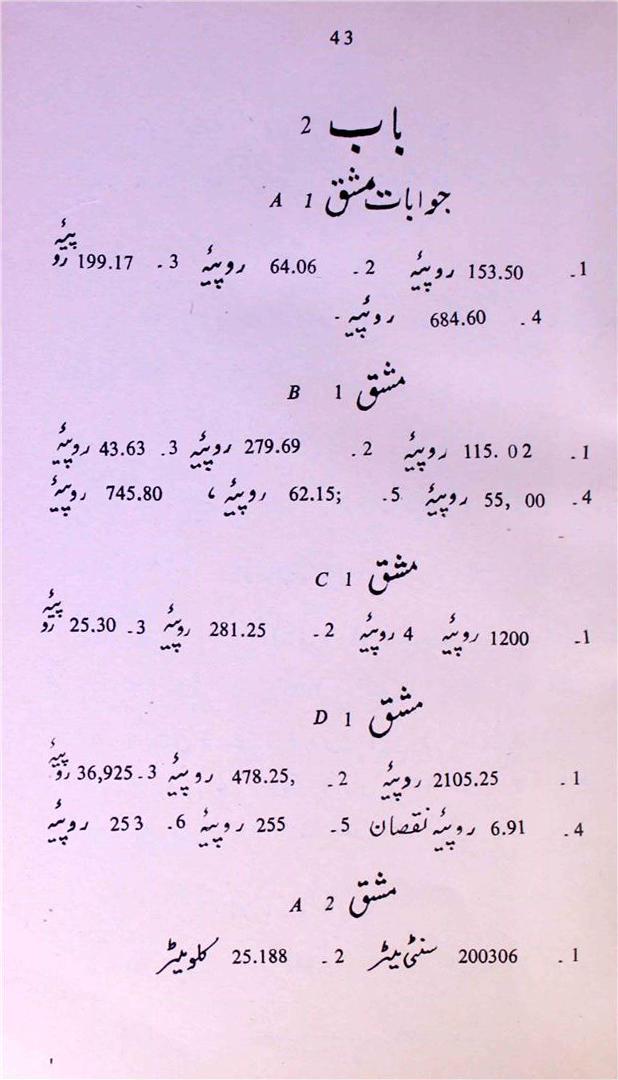 43
باب 2
جوابات مشق 1 A
1۔ 153.50 روپیئے 2۔ 64.06 روپیئے 3۔ 199.17 روپیئے
4۔ 684.60 روپیئے۔
مشق 1 B
1۔ 115.02 روپیئے 2۔ 279.69 روپیئے 3۔ 43.63 روپیئے
4۔ 55,00 روپیئے 5۔ 62.15; روپیئے، 745.80 روپیئے
مشق 1 C
1۔ 1200 روپیئے 4 روپیئے 2۔ 281.25 روپیئے 3۔ 25.30 روپیئے
مشق 1 D
1۔ 2105.25 روپیئے 2۔ 478.25, روپیئے 3۔ 36,925 روپیئے
4۔ 6.91 روپیئے نقصان 5۔ 255 روپیئے 6۔ 253 روپیئے
مشق 2 A
1۔ 200306 سنٹی میٹر 2۔ 25.188 کلو میٹر